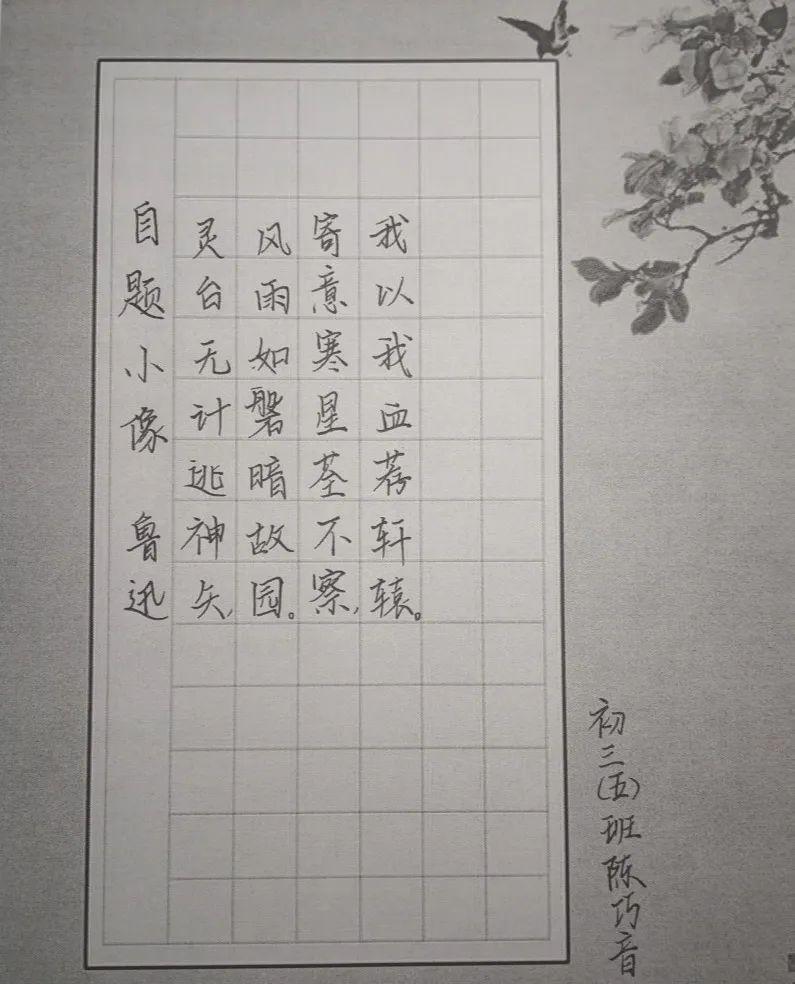 自题小像 鲁迅
灵台无计逃神矢，
风雨如磐暗故园。
寄意寒星荃不察，
我以我血荐轩辕。
初三(五)班陈巧音